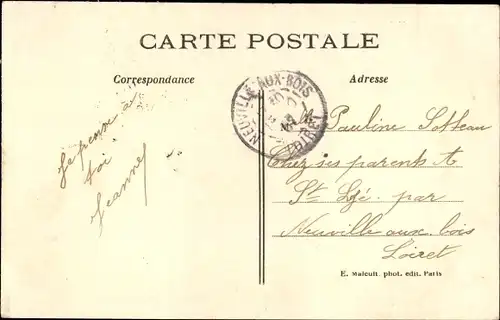 CARTE POSTALE
Correspondance
Adresse
NEUVILLE-AUX-BOIS
LOIRET
Je pense à
toi
Jeanne
Pauline
Chez ses parents A
St Lyé par
Neuville aux bois
Loiret
E. Malcuit. phot. edit. Paris